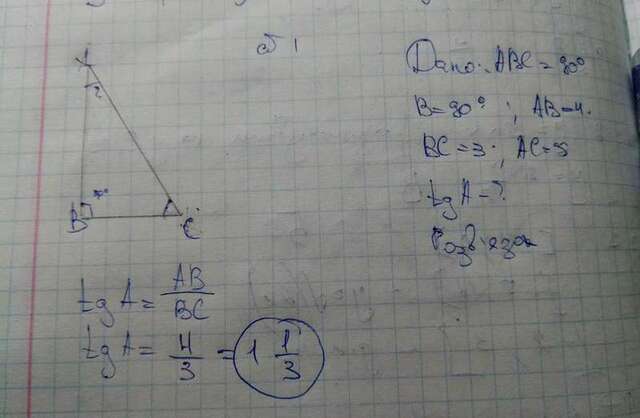 №1
Дано: ABC = 90°
B = 90° ; AB = 4.
BC = 3 ; AC = 5
tg A - ?
Розв'язок
A
?
B
C
tg A = AB/BC
tg A = 4/3 = 1 1/3